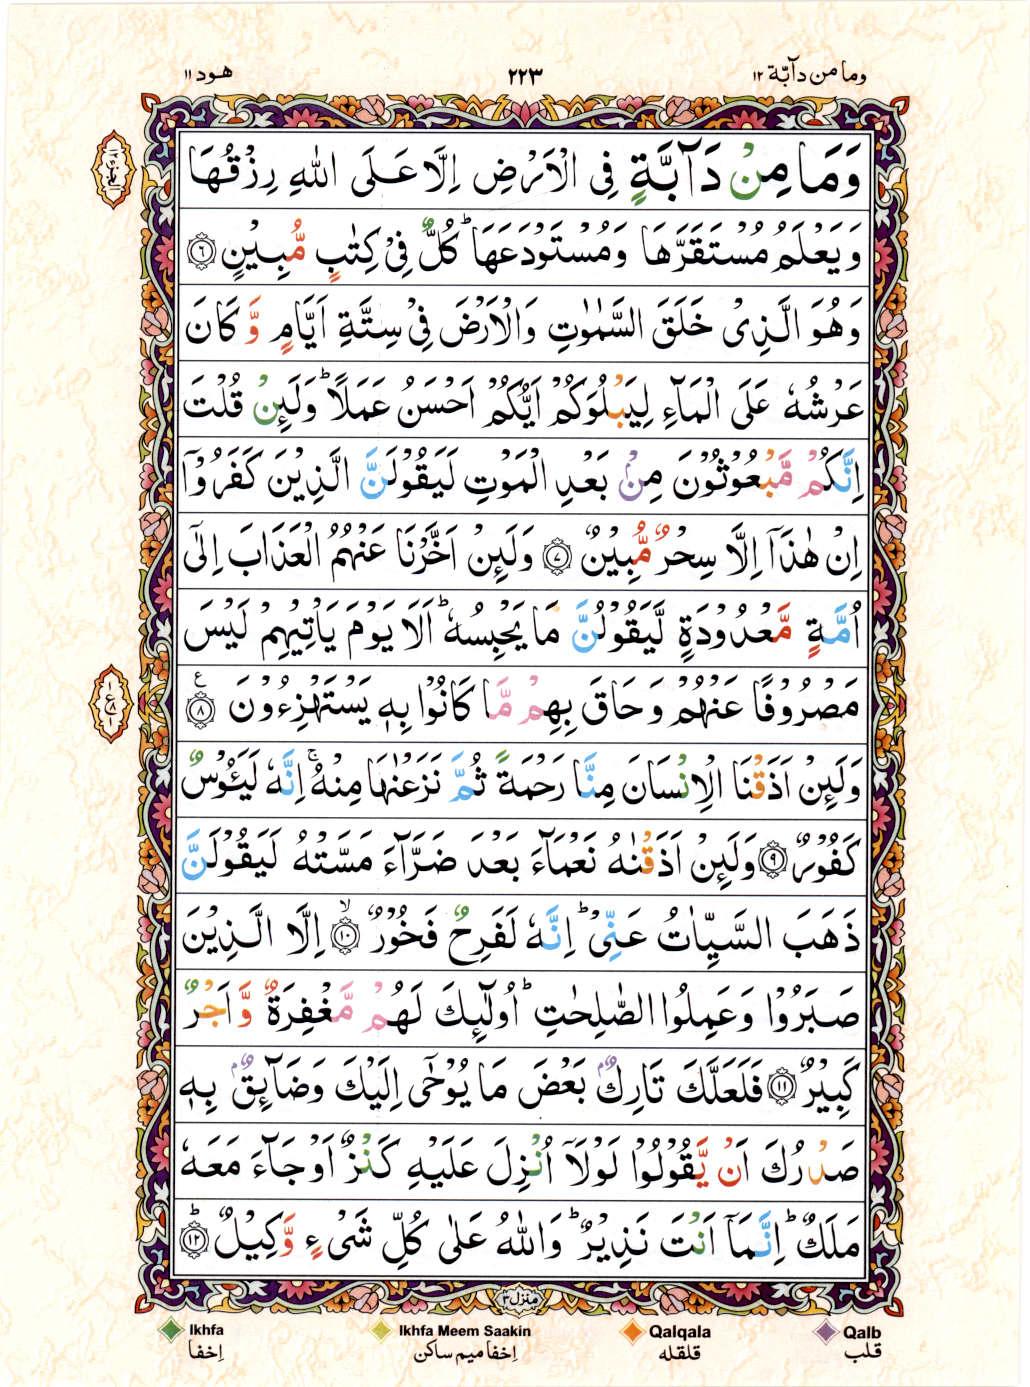 وما من دآبّة ١٢
٢٢٣
هود ١١
وَمَا مِنْ دَآبَّةٍ فِی الْاَرْضِ اِلَّا عَلَی اللّٰهِ رِزْقُهَا
وَيَعْلَمُ مُسْتَقَرَّهَا وَمُسْتَوْدَعَهَا ؕ كُلٌّ فِیْ كِتٰبٍ مُّبِيْنٍ ﴿٦﴾
وَهُوَ الَّذِیْ خَلَقَ السَّمٰوٰتِ وَالْاَرْضَ فِیْ سِتَّةِ اَيَّامٍ وَّكَانَ
عَرْشُهٗ عَلَی الْمَآءِ لِيَبْلُوَكُمْ اَيُّكُمْ اَحْسَنُ عَمَلًا ؕ وَلَئِنْ قُلْتَ
اِنَّكُمْ مَّبْعُوْثُوْنَ مِنْۢ بَعْدِ الْمَوْتِ لَيَقُوْلَنَّ الَّذِيْنَ كَفَرُوْۤا
اِنْ هٰذَاۤ اِلَّا سِحْرٌ مُّبِيْنٌ ﴿٧﴾ وَلَئِنْ اَخَّرْنَا عَنْهُمُ الْعَذَابَ اِلٰۤی
اُمَّةٍ مَّعْدُوْدَةٍ لَّيَقُوْلُنَّ مَا يَحْبِسُهٗ ؕ اَلَا يَوْمَ يَاْتِيْهِمْ لَيْسَ
مَصْرُوْفًا عَنْهُمْ وَحَاقَ بِهِمْ مَّا كَانُوْا بِهٖ يَسْتَهْزِءُوْنَ ﴿٨﴾ ع
وَلَئِنْ اَذَقْنَا الْاِنْسَانَ مِنَّا رَحْمَةً ثُمَّ نَزَعْنٰهَا مِنْهُ ۚ اِنَّهٗ لَيَئُوْسٌ
كَفُوْرٌ ﴿٩﴾ وَلَئِنْ اَذَقْنٰهُ نَعْمَآءَ بَعْدَ ضَرَّآءَ مَسَّتْهُ لَيَقُوْلَنَّ
ذَهَبَ السَّيِّاٰتُ عَنِّیْ ؕ اِنَّهٗ لَفَرِحٌ فَخُوْرٌ ﴿١٠﴾ ۙ اِلَّا الَّذِيْنَ
صَبَرُوْا وَعَمِلُوا الصّٰلِحٰتِ ؕ اُولٰٓئِكَ لَهُمْ مَّغْفِرَةٌ وَّاَجْرٌ
كَبِيْرٌ ﴿١١﴾ فَلَعَلَّكَ تَارِكٌۢ بَعْضَ مَا يُوْحٰۤی اِلَيْكَ وَضَآئِقٌۢ بِهٖ
صَدْرُكَ اَنْ يَّقُوْلُوْا لَوْلَاۤ اُنْزِلَ عَلَيْهِ كَنْزٌ اَوْ جَآءَ مَعَهٗ
مَلَكٌ ؕ اِنَّمَاۤ اَنْتَ نَذِيْرٌ ؕ وَاللّٰهُ عَلٰی كُلِّ شَیْءٍ وَّكِيْلٌ ؕ ﴿١٢﴾
منزل ٣
Ikhfa Ikhfa Meem Saakin Qalqala Qalb
اِخفا اِخفا میم ساکن قلقله قلب